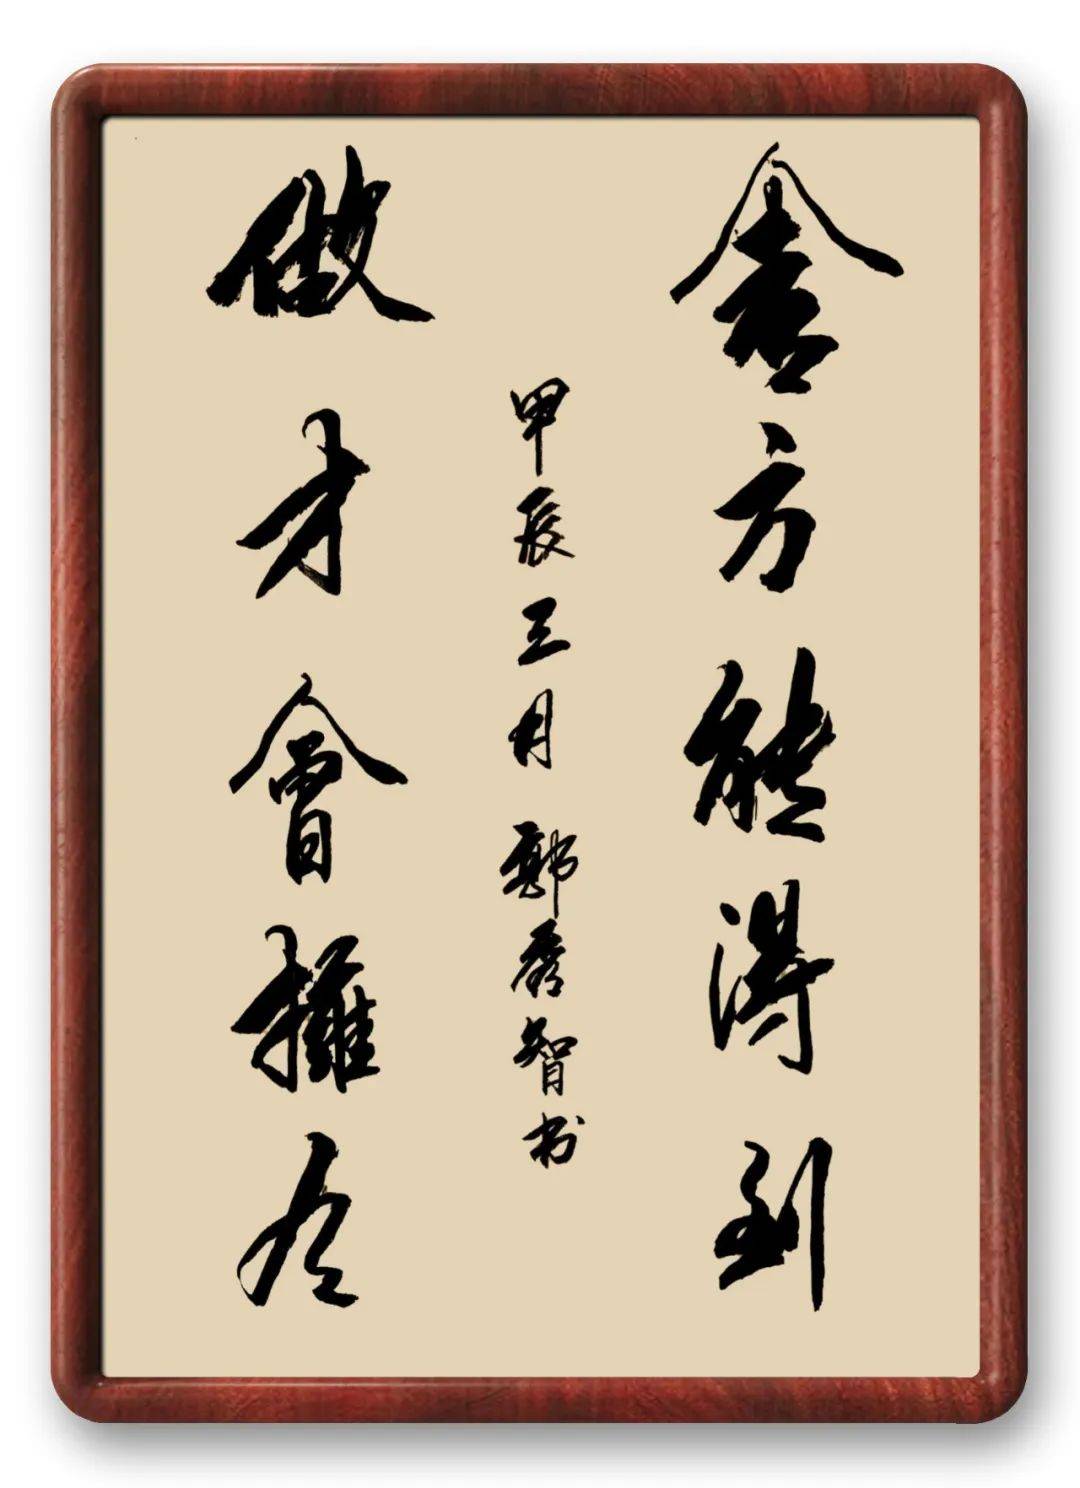 舍方能得到
做才會擁有
甲辰三月 郭秀智书